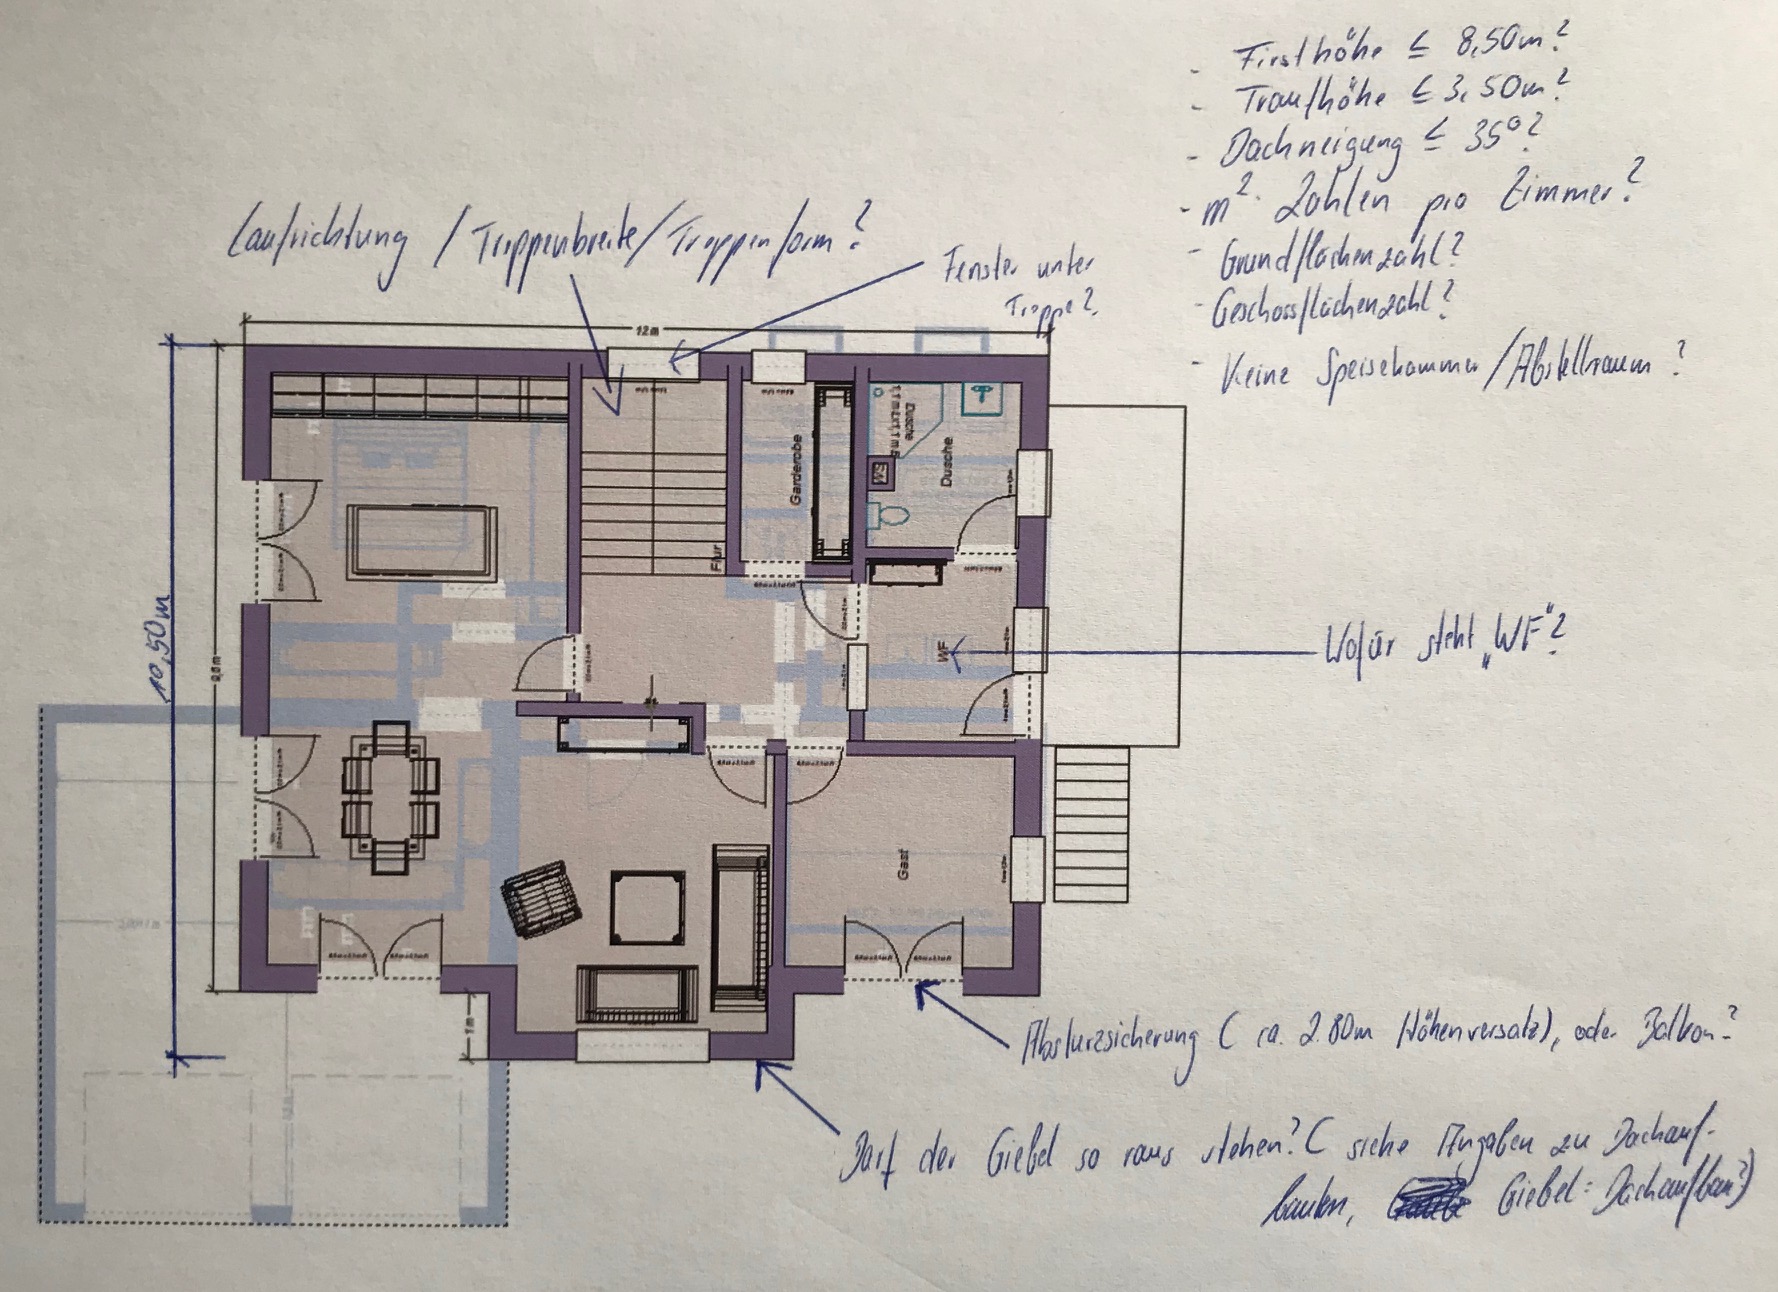 - Firsthöhe ≤ 8,50m?
- Traufhöhe ≤ 3,50m?
- Dachneigung ≤ 35°?
- m² Zahlen pro Zimmer?
- Grundflächenzahl?
- Geschossflächenzahl?
- Keine Speisekammer/Abstellraum?
Laufrichtung / Treppenbreite/Treppenform?
Fenster unter
Treppe?
12m
10,50m
1m
Garderobe
Dusche
Dusche
Flur
WF
Wofür steht "WF"?
Gast
Absturzsicherung (ca. 2.80m Höhenversatz), oder Balkon?
Darf der Giebel so raus stehen? (siehe Angaben zu Dachauf-
bauten, Giebel = Dachaufbau?)